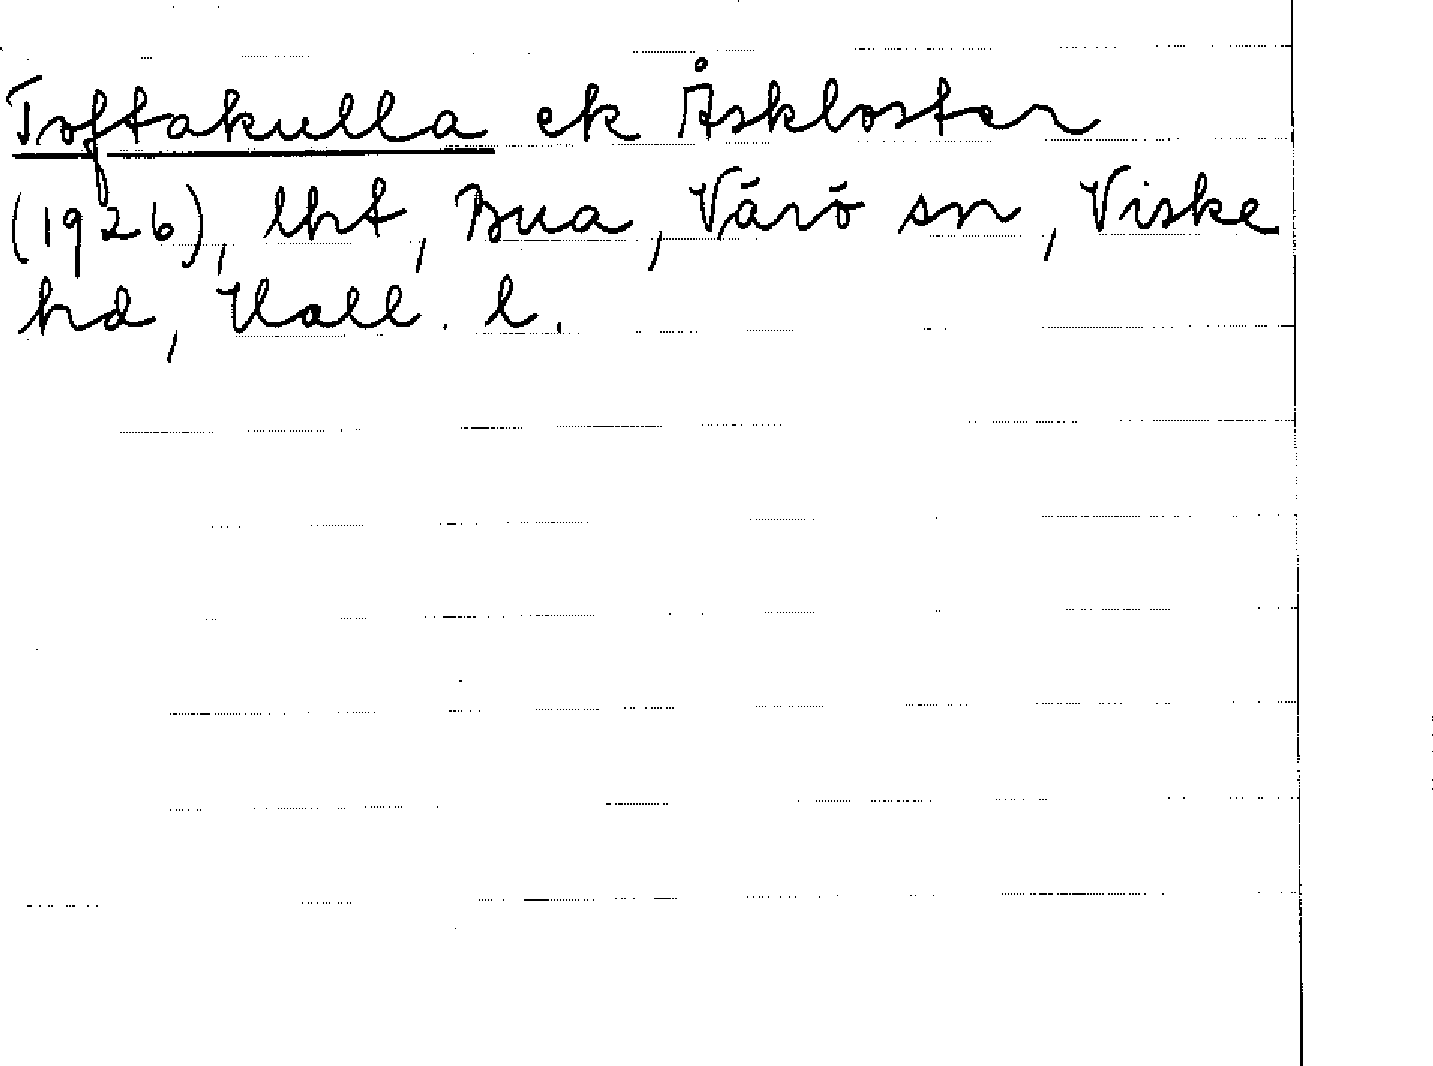 Toftakulla ek Åskloster
(1926), lht, Bua, Värö sn, Viske
hd, Hall. l.